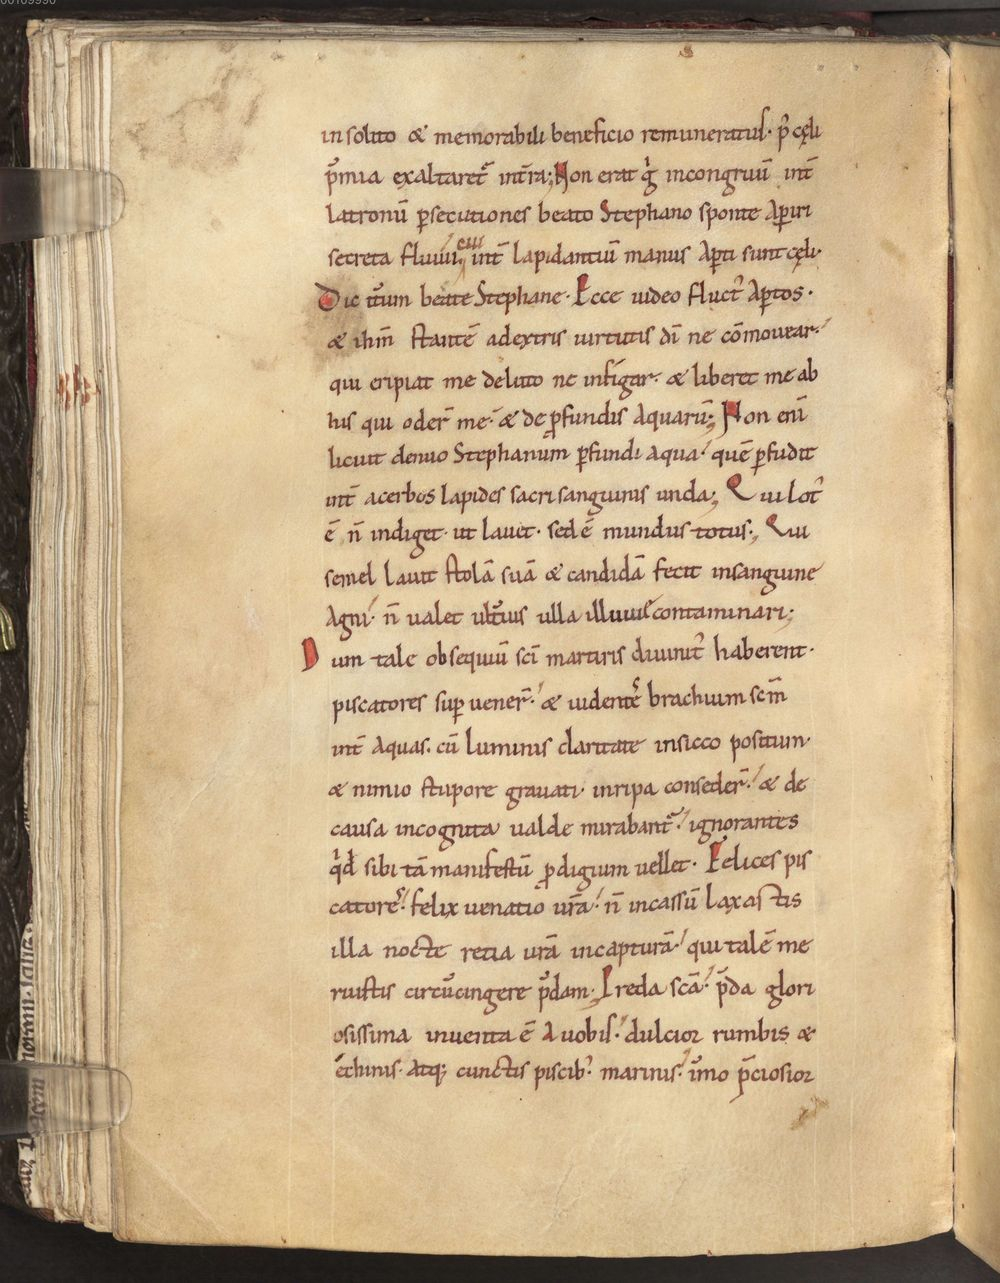 insolito & memorabili beneficio remuneratus· p̄ cęli
p̄mia exaltaret᷑ int̄ra; Non erat g̊ incongruū int̄
latronū ꝑsecutiones beato Stephano sponte aꝑiri
secreta fluuii, eui int̄ lapidantiū manus aꝑti sunt cęli·
Dic it̄um beate Stephane· Ecce uideo fluct᷒ aꝑtos·
& ihm̄ stantē adextris uirtutis dī ne cōmouear·
qui eripiat me deluto ne infigar· & liberet me ab
his qui oder̄ me· & de ꝓfundis aquarū; Non enī
licuit denuo Stephanum ꝑfundi aqua· quē ꝑfudit
int̄ acerbos lapides sacri sanguinis unda; Qui lot᷒
ē n̄ indiget· ut lauet· sed ē mundus totus·, Qui
semel lauit stolā suā & candidā fecit insanguine
Agni· n̄ ualet ult̄ius ulla illuuie contaminari;
Dum tale obsequiū scī martiris diuinit᷒ haberent·
piscatores suꝑuener̄· & uidentes brachium scm̄
int̄ aquas· cū luminis claritate insicco positum·
& nimio stupore grauati· inripa conseder̄· & de
causa incognita ualde mirabant᷑· ignorantes
qd̄ sibi tā manifestū ꝓdigium uellet· Felices pis
catores· felix uenatio ur̄a· n̄ incassū laxastis
illa nocte retia ur̄a incapturā· qui talē me
ruistis circūcingere p̄dam· Preda scā· p̄da glori
osissima inuenta ē a uobis· dulcior rumbis &
echinis· atq; cunctis piscib᷒ marinis· īmo p̄ciosior